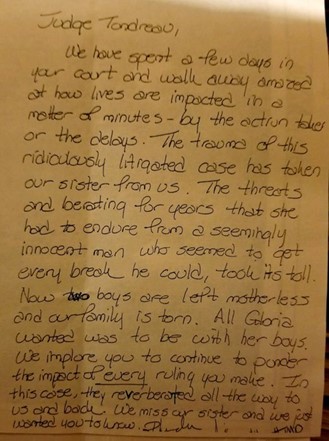 Judge Tondreau,
We have spent a few days in
your court and walk away amazed
at how lives are impacted in a
matter of minutes - by the action taken
or the delays. The trauma of this
ridiculously litigated case has taken
our sister from us. The threats
and berating for years that she
had to endure from a seemingly
innocent man who seemed to get
every break he could, took its toll.
Now two boys are left motherless
and our family is torn. All Gloria
wanted was to be with her boys.
We implore you to continue to ponder
the impact of every ruling you make. In
this case, they reverberated all the way to
us and back. We miss our sister and we just
wanted you to know.